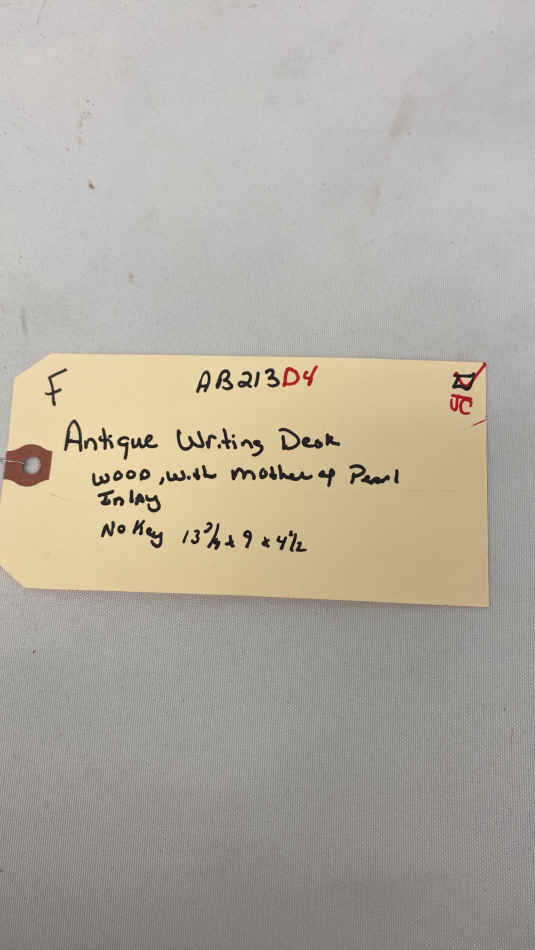 F
AB213D4
JC
Antique Writing Desk
WOOD, with Mother of Pearl
Inlay
No Key 13 3/4 x 9 x 4 1/2